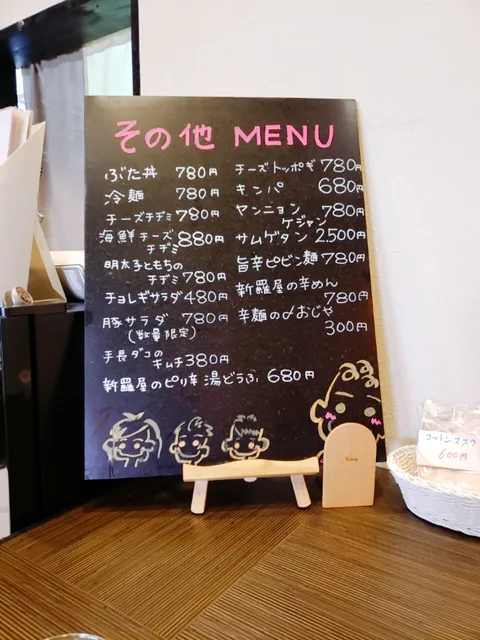 その他 MENU
ぶた丼 780円
冷麺 780円
チーズチヂミ 780円
海鮮チーズ
チヂミ 880円
明太子ともちの
チヂミ 780円
チョレギサラダ 480円
豚サラダ 780円
(数量限定)
手長ダコの
キムチ 380円
新羅屋のピリ辛湯どうふ 680円
チーズトッポギ 780円
キンパ 680円
ヤンニョン
ケジャン 780円
サムゲタン 2.500円
旨辛ピビン麺 780円
新羅屋の辛めん
780円
辛麺の〆おじや
300円
コットンマスク
600円